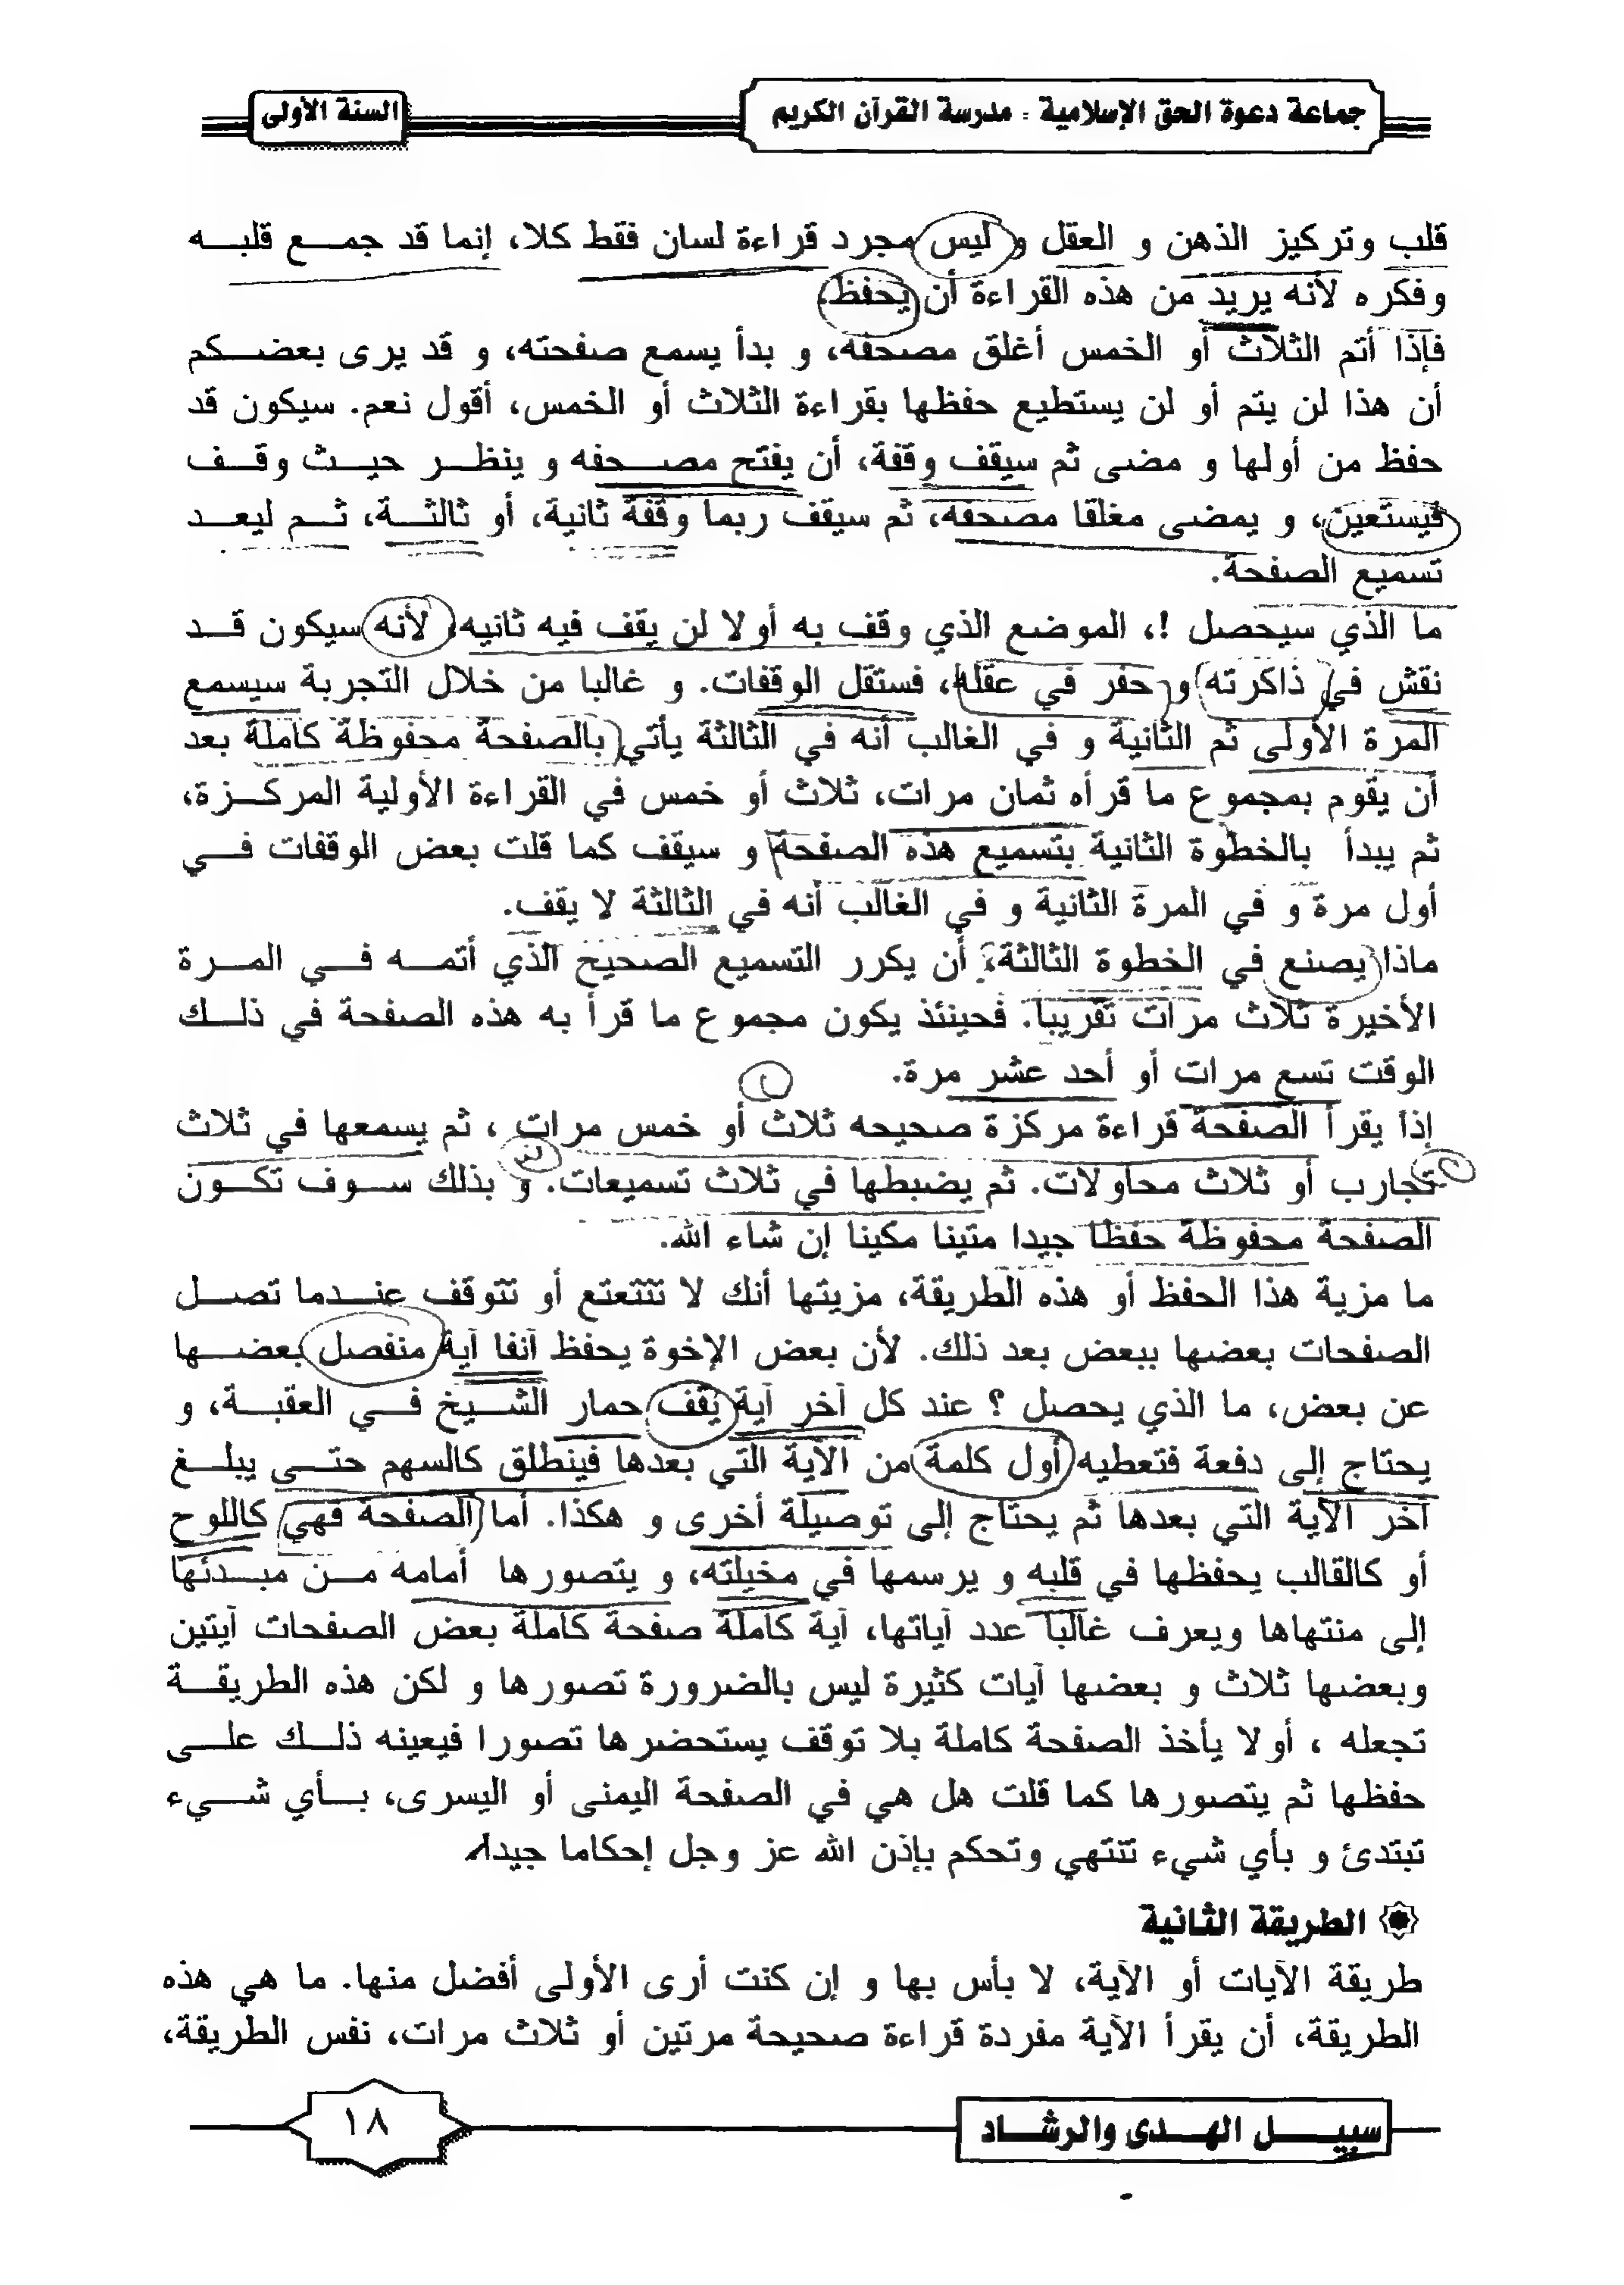 جماعة دعوة الحق الإسلامية - مدرسة القرآن الكريم
السنة الأولى
قلب وتركيز الذهن و العقل و ليس مجرد قراءة لسان فقط كلا، إنما قد جمع قلبه
وفكره لأنه يريد من هذه القراءة أن يحفظ.
فإذا أتم الثلاث أو الخمس أغلق مصحفه، و بدأ يسمع صفحته، و قد يرى بعضكم
أن هذا لن يتم أو لن يستطيع حفظها بقراءة الثلاث أو الخمس، أقول نعم. سيكون قد
حفظ من أولها و مضى ثم سيقف وقفة، أن يفتح مصحفه و ينظر حيث وقف
فيستعين، و يمضى مغلقا مصحفه، ثم سيقف ربما وقفة ثانية، أو ثالثة، ثم ليعد
تسميع الصفحة.
ما الذي سيحصل !، الموضع الذي وقف به أولا لن يقف فيه ثانيه، لأنه سيكون قد
نقش في ذاكرته و حفر في عقله، فستقل الوقفات. و غالبا من خلال التجربة سيسمع
المرة الأولى ثم الثانية و في الغالب أنه في الثالثة يأتي بالصفحة محفوظة كاملة بعد
أن يقوم بمجموع ما قرأه ثمان مرات، ثلاث أو خمس في القراءة الأولية المركزة،
ثم يبدأ بالخطوة الثانية بتسميع هذه الصفحة و سيقف كما قلت بعض الوقفات في
أول مرة و في المرة الثانية و في الغالب أنه في الثالثة لا يقف.
ماذا يصنع في الخطوة الثالثة، أن يكرر التسميع الصحيح الذي أتمه في المرة
الأخيرة ثلاث مرات تقريبا. فحينئذ يكون مجموع ما قرأ به هذه الصفحة في ذلك
الوقت تسع مرات أو أحد عشر مرة.
إذا يقرأ الصفحة قراءة مركزة صحيحه ثلاث أو خمس مرات ، ثم يسمعها في ثلاث
تجارب أو ثلاث محاولات. ثم يضبطها في ثلاث تسميعات. و بذلك سوف تكون
الصفحة محفوظة حفظا جيدا متينا مكينا إن شاء الله.
ما مزية هذا الحفظ أو هذه الطريقة، مزيتها أنك لا تتتعتع أو تتوقف عندما تصل
الصفحات بعضها ببعض بعد ذلك. لأن بعض الإخوة يحفظ آنفا آية منفصل بعضها
عن بعض، ما الذي يحصل ؟ عند كل آخر آية يقف حمار الشيخ في العقبة، و
يحتاج إلى دفعة فتعطيه أول كلمة من الآية التي بعدها فينطلق كالسهم حتى يبلغ
آخر الآية التي بعدها ثم يحتاج إلى توصيلة أخرى و هكذا. أما الصفحة فهي كاللوح
أو كالقالب يحفظها في قلبه و يرسمها في مخيلته، و يتصورها أمامه من مبدئها
إلى منتهاها ويعرف غالبا عدد آياتها، آية كاملة صفحة كاملة بعض الصفحات آيتين
وبعضها ثلاث و بعضها آيات كثيرة ليس بالضرورة تصورها و لكن هذه الطريقة
تجعله ، أولا يأخذ الصفحة كاملة بلا توقف يستحضرها تصورا فيعينه ذلك على
حفظها ثم يتصورها كما قلت هل هي في الصفحة اليمنى أو اليسرى، بأي شيء
تبتدئ و بأي شيء تنتهي وتحكم بإذن الله عز وجل إحكاما جيدا.
الطريقة الثانية
طريقة الآيات أو الآية، لا بأس بها و إن كنت أرى الأولى أفضل منها. ما هي هذه
الطريقة، أن يقرأ الآية مفردة قراءة صحيحة مرتين أو ثلاث مرات، نفس الطريقة،
سبيل الهدى والرشاد
١٨